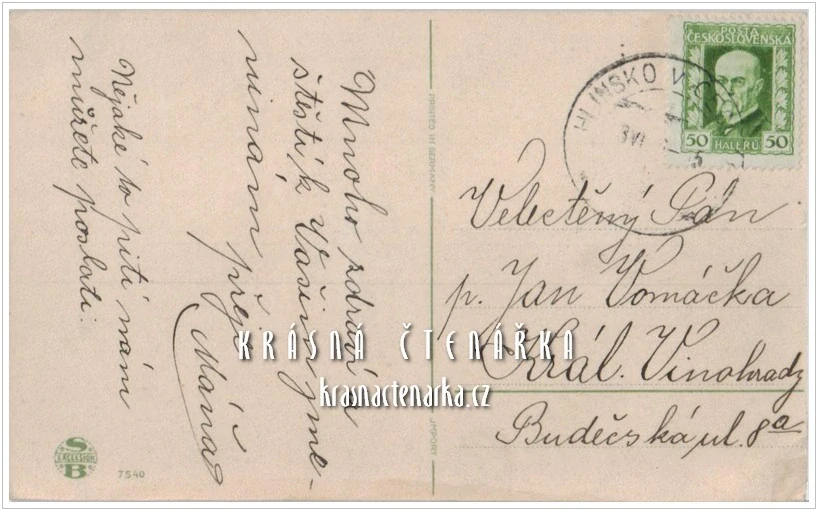 Mnoho zdraví a
štěstí k Vašim jme-
ninám přeje
Máňa
Nějaké to pití nám
můžete poslati.
POSTA
ČESKOSLOVENSKÁ
50 HALÉŘŮ 50
HLINSKO V
Velectěný Pán
p. Jan Vomáčka
Král. Vinohrady
Budečská ul. 8a
PRINTED IN GERMANY
IMPORT
KRÁSNÁ ČTENÁŘKA
krasnactenarka.cz
S
EXCELSIOR
B
7540